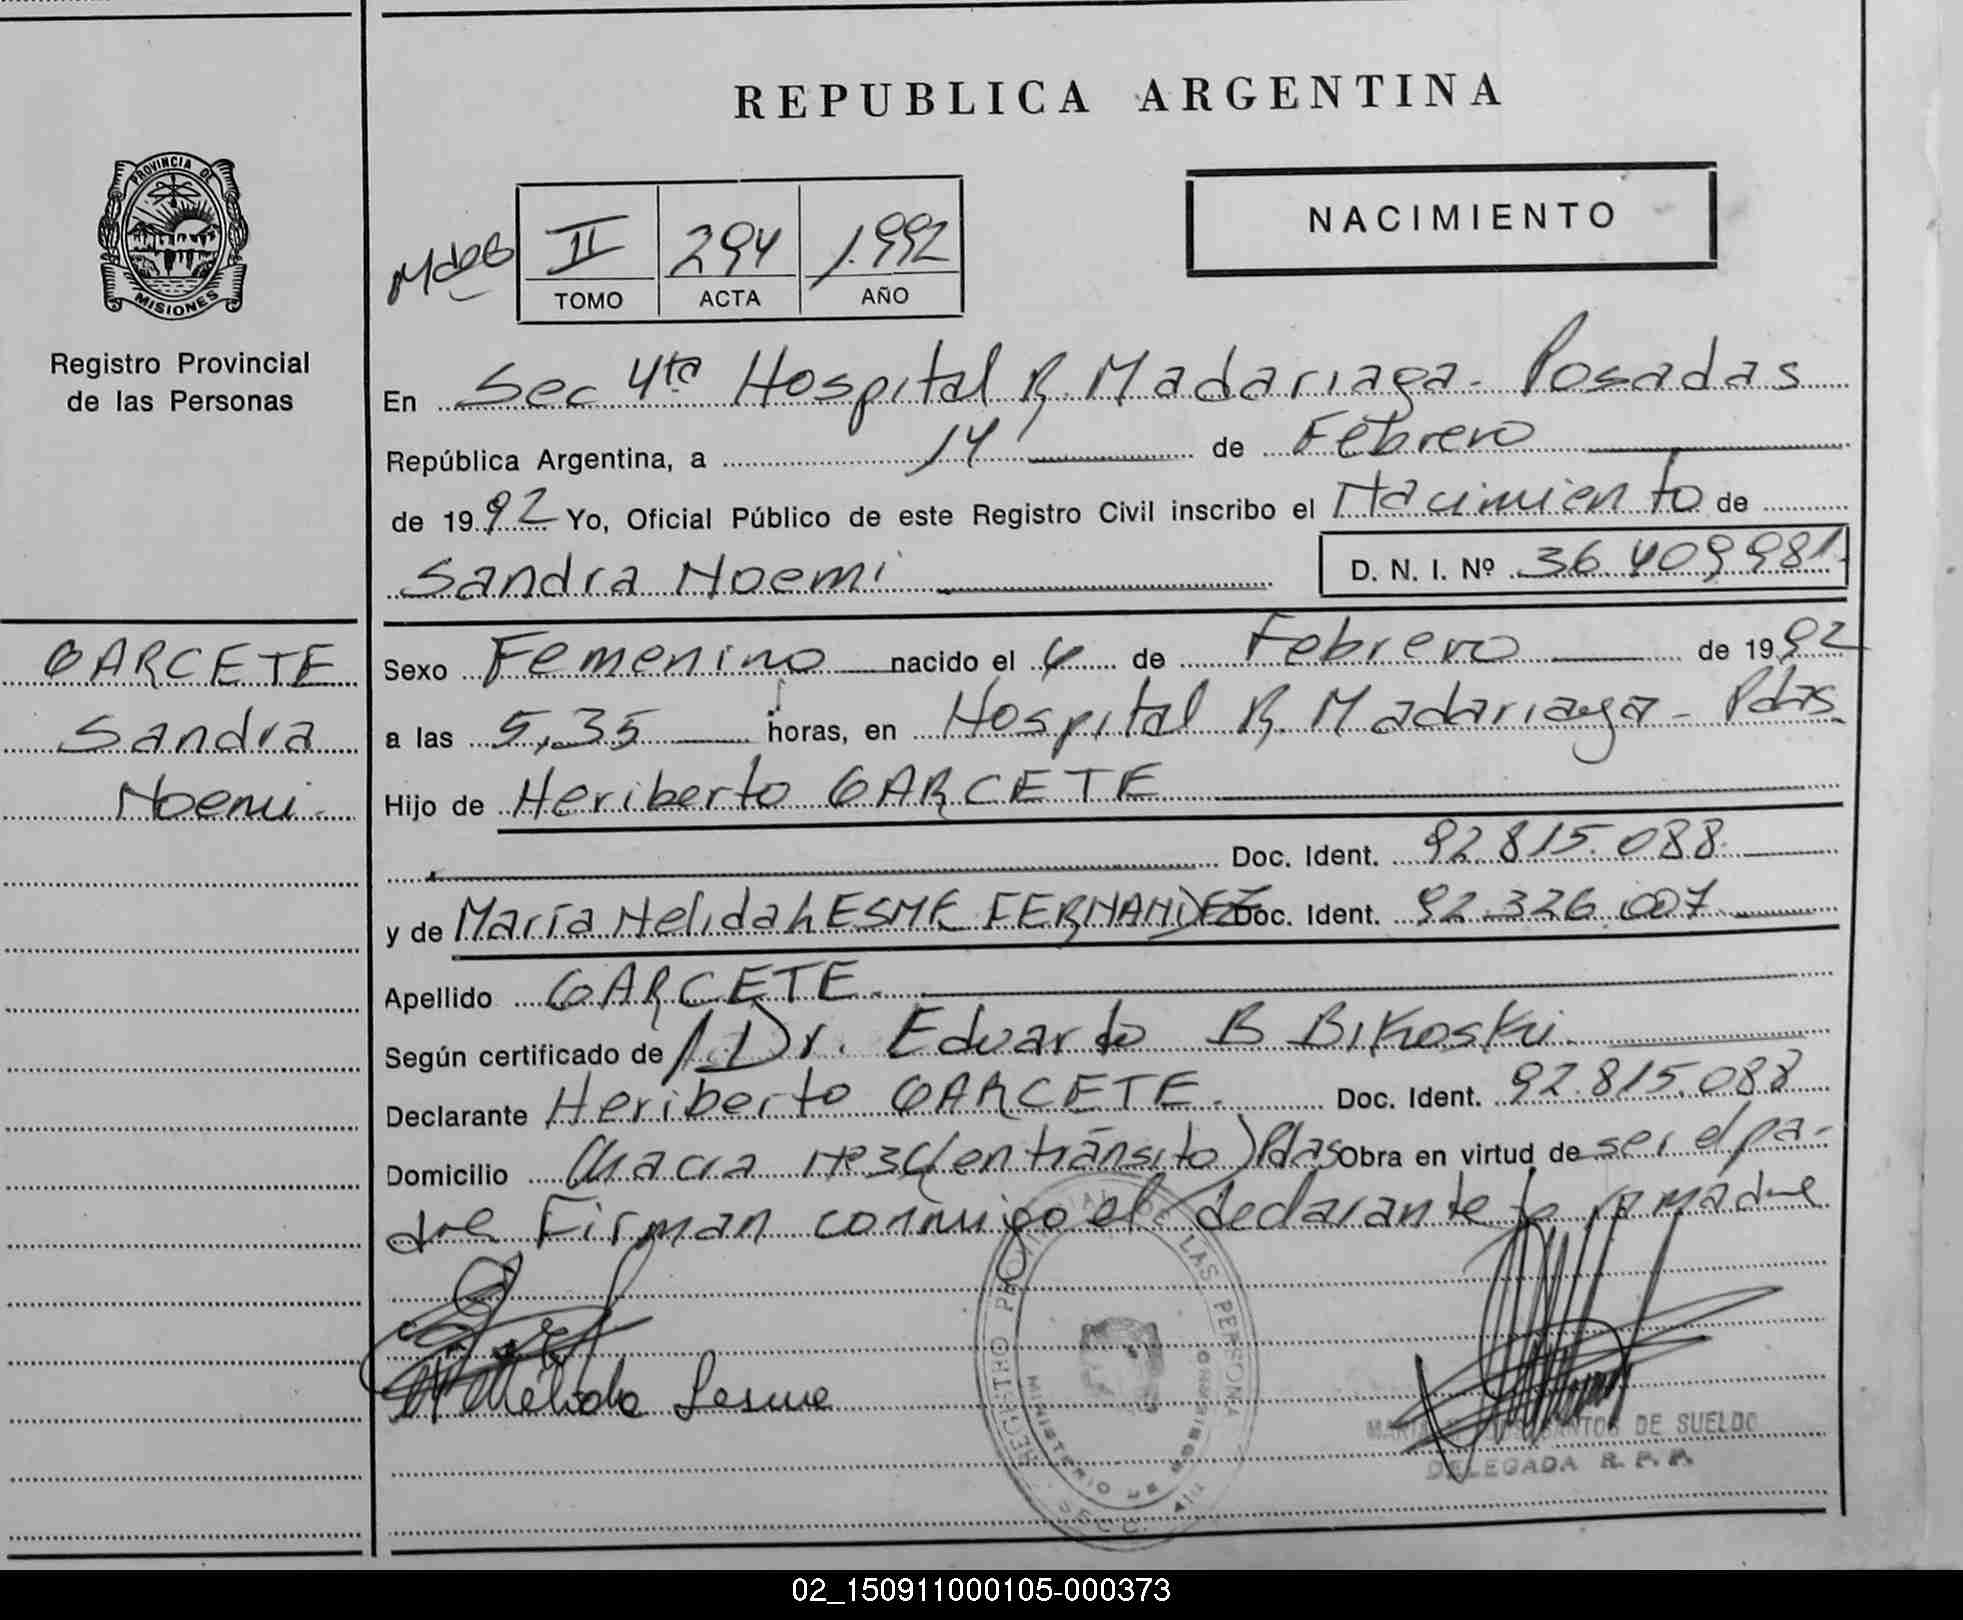 REPUBLICA ARGENTINA
PROVINCIA DE
MISIONES
Registro Provincial
de las Personas
NACIMIENTO
II 294 1.992
TOMO ACTA AÑO
En Sec 4ta Hospital R. Madariaga - Posadas
República Argentina, a 14 de Febrero
de 1992 Yo, Oficial Público de este Registro Civil inscribo el Nacimiento de
Sandra Noemi D. N. I. Nº 36.409.981
GARCETE
Sandra
Noemi.
Sexo Femenino nacido el 4 de Febrero de 1992
a las 5,35 horas, en Hospital R. Madariaga - Pdas.
Hijo de Heriberto GARCETE
Doc. Ident. 92.815.088.
y de María Nelida LESME FERNANDEZ Doc. Ident. 92.326.007
Apellido GARCETE.
Según certificado de Dr. Eduardo B Bikoski
Declarante Heriberto GARCETE. Doc. Ident. 92.815.088
Domicilio Chacra Nº 34 (en tránsito) Pdas Obra en virtud de ser el pa-
dre Firman conmigo el declarante y la madre
Nelida Lesme
REGISTRO PROVINCIAL DE LAS PERSONAS
MINISTERIO DE GOBIERNO
SANTOS DE SUELDO
DELEGADA R. P. P.
02_150911000105-000373